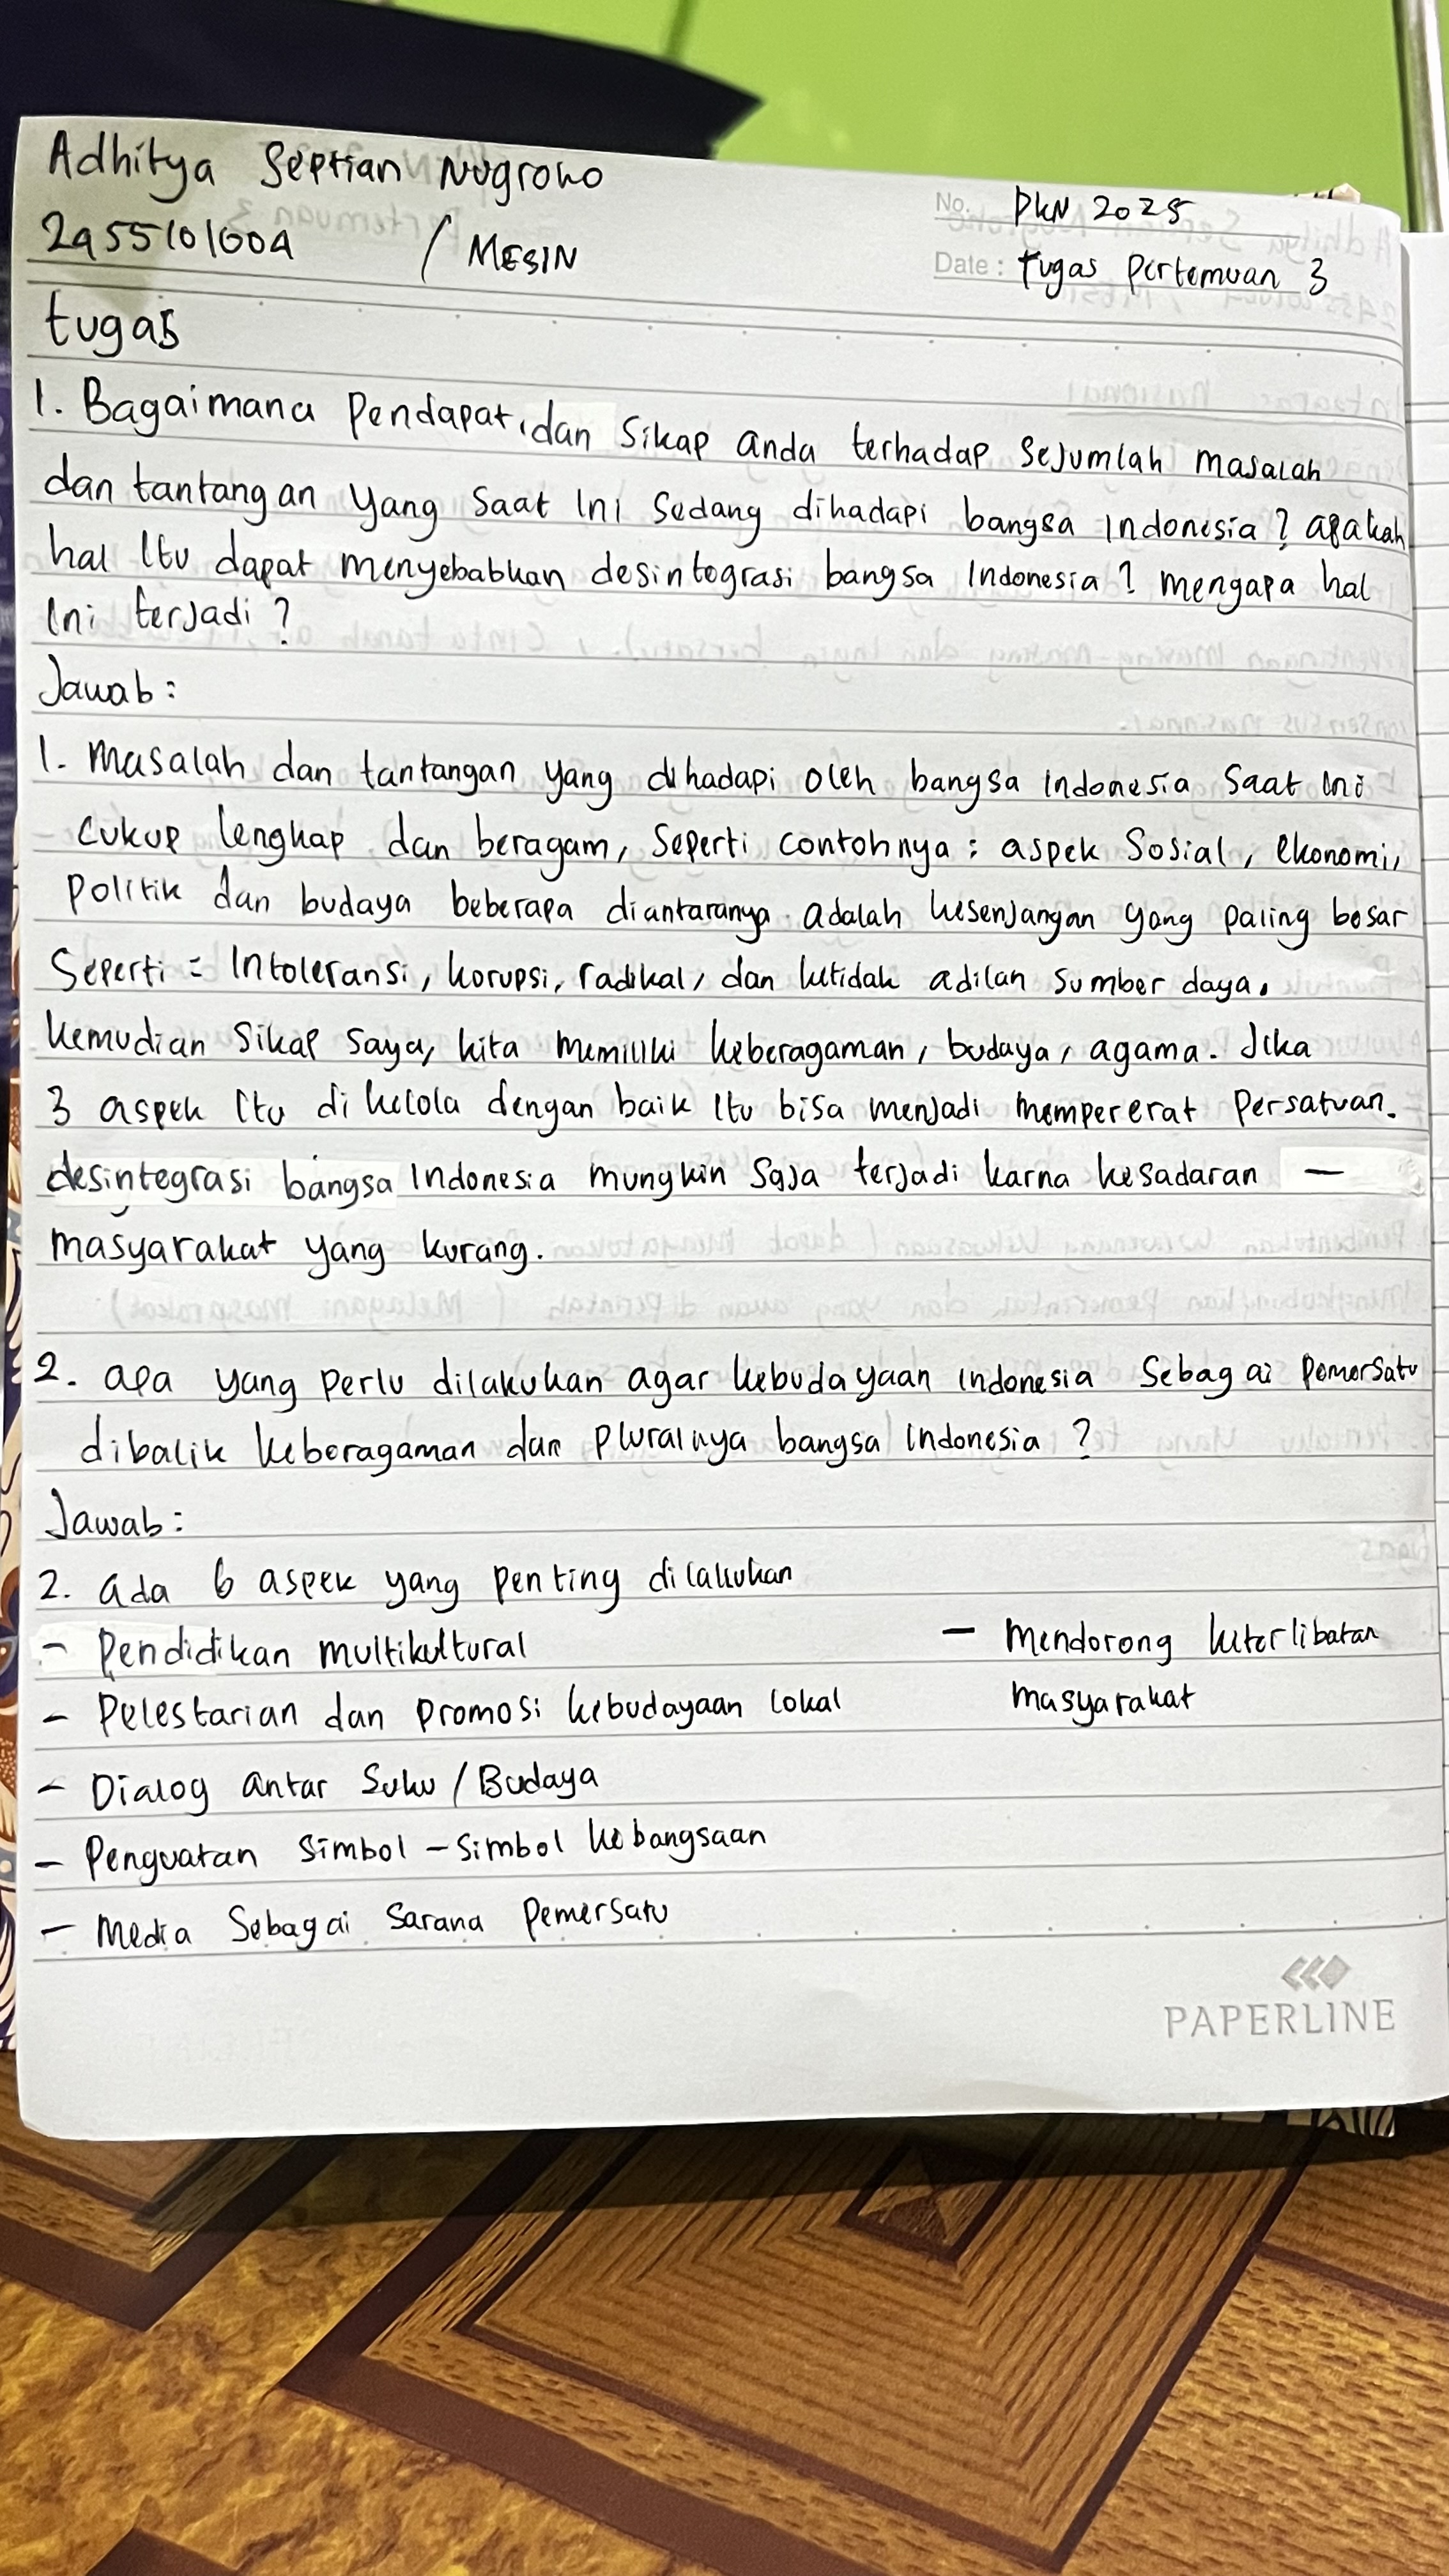 Adhitya Septian Nugroho
2955101004 / MESIN
No. PKN 2025
Date: Tugas Pertemuan 3
tugas
1. Bagaimana Pendapat, dan Sikap anda terhadap Sejumlah masalah
dan tantangan yang Saat Ini Sedang dihadapi bangsa Indonesia? apakah
hal Itu dapat menyebabkan desintegrasi bangsa Indonesia? mengapa hal
Ini terjadi?
Jawab:
1. Masalah dan tantangan yang dihadapi oleh bangsa Indonesia Saat Ini
Cukup lengkap dan beragam, Seperti contohnya: aspek Sosial, ekonomi,
Politik dan budaya beberapa diantaranya adalah kesenjangan yang paling besar
Seperti = Intoleransi, korupsi, radikal, dan ketidak adilan sumber daya.
kemudian Sikap saya, kita memiliki keberagaman, budaya, agama. Jika
3 aspek Itu di kelola dengan baik Itu bisa menjadi mempererat Persatuan.
desintegrasi bangsa Indonesia mungkin Saja terjadi karna kesadaran —
masyarakat yang kurang.
2. apa yang perlu dilakukan agar kebudayaan Indonesia Sebagai Pemersatu
dibalik keberagaman dan Pluralnya bangsa Indonesia?
Jawab:
2. ada 6 aspek yang penting dilakukan
- Pendidikan multikultural
- Pelestarian dan promosi kebudayaan lokal
- Dialog antar Suku / Budaya
- Penguatan Simbol - Simbol kebangsaan
- Media Sebagai Sarana Pemersatu
- Mendorong keterlibatan
masyarakat
PAPERLINE